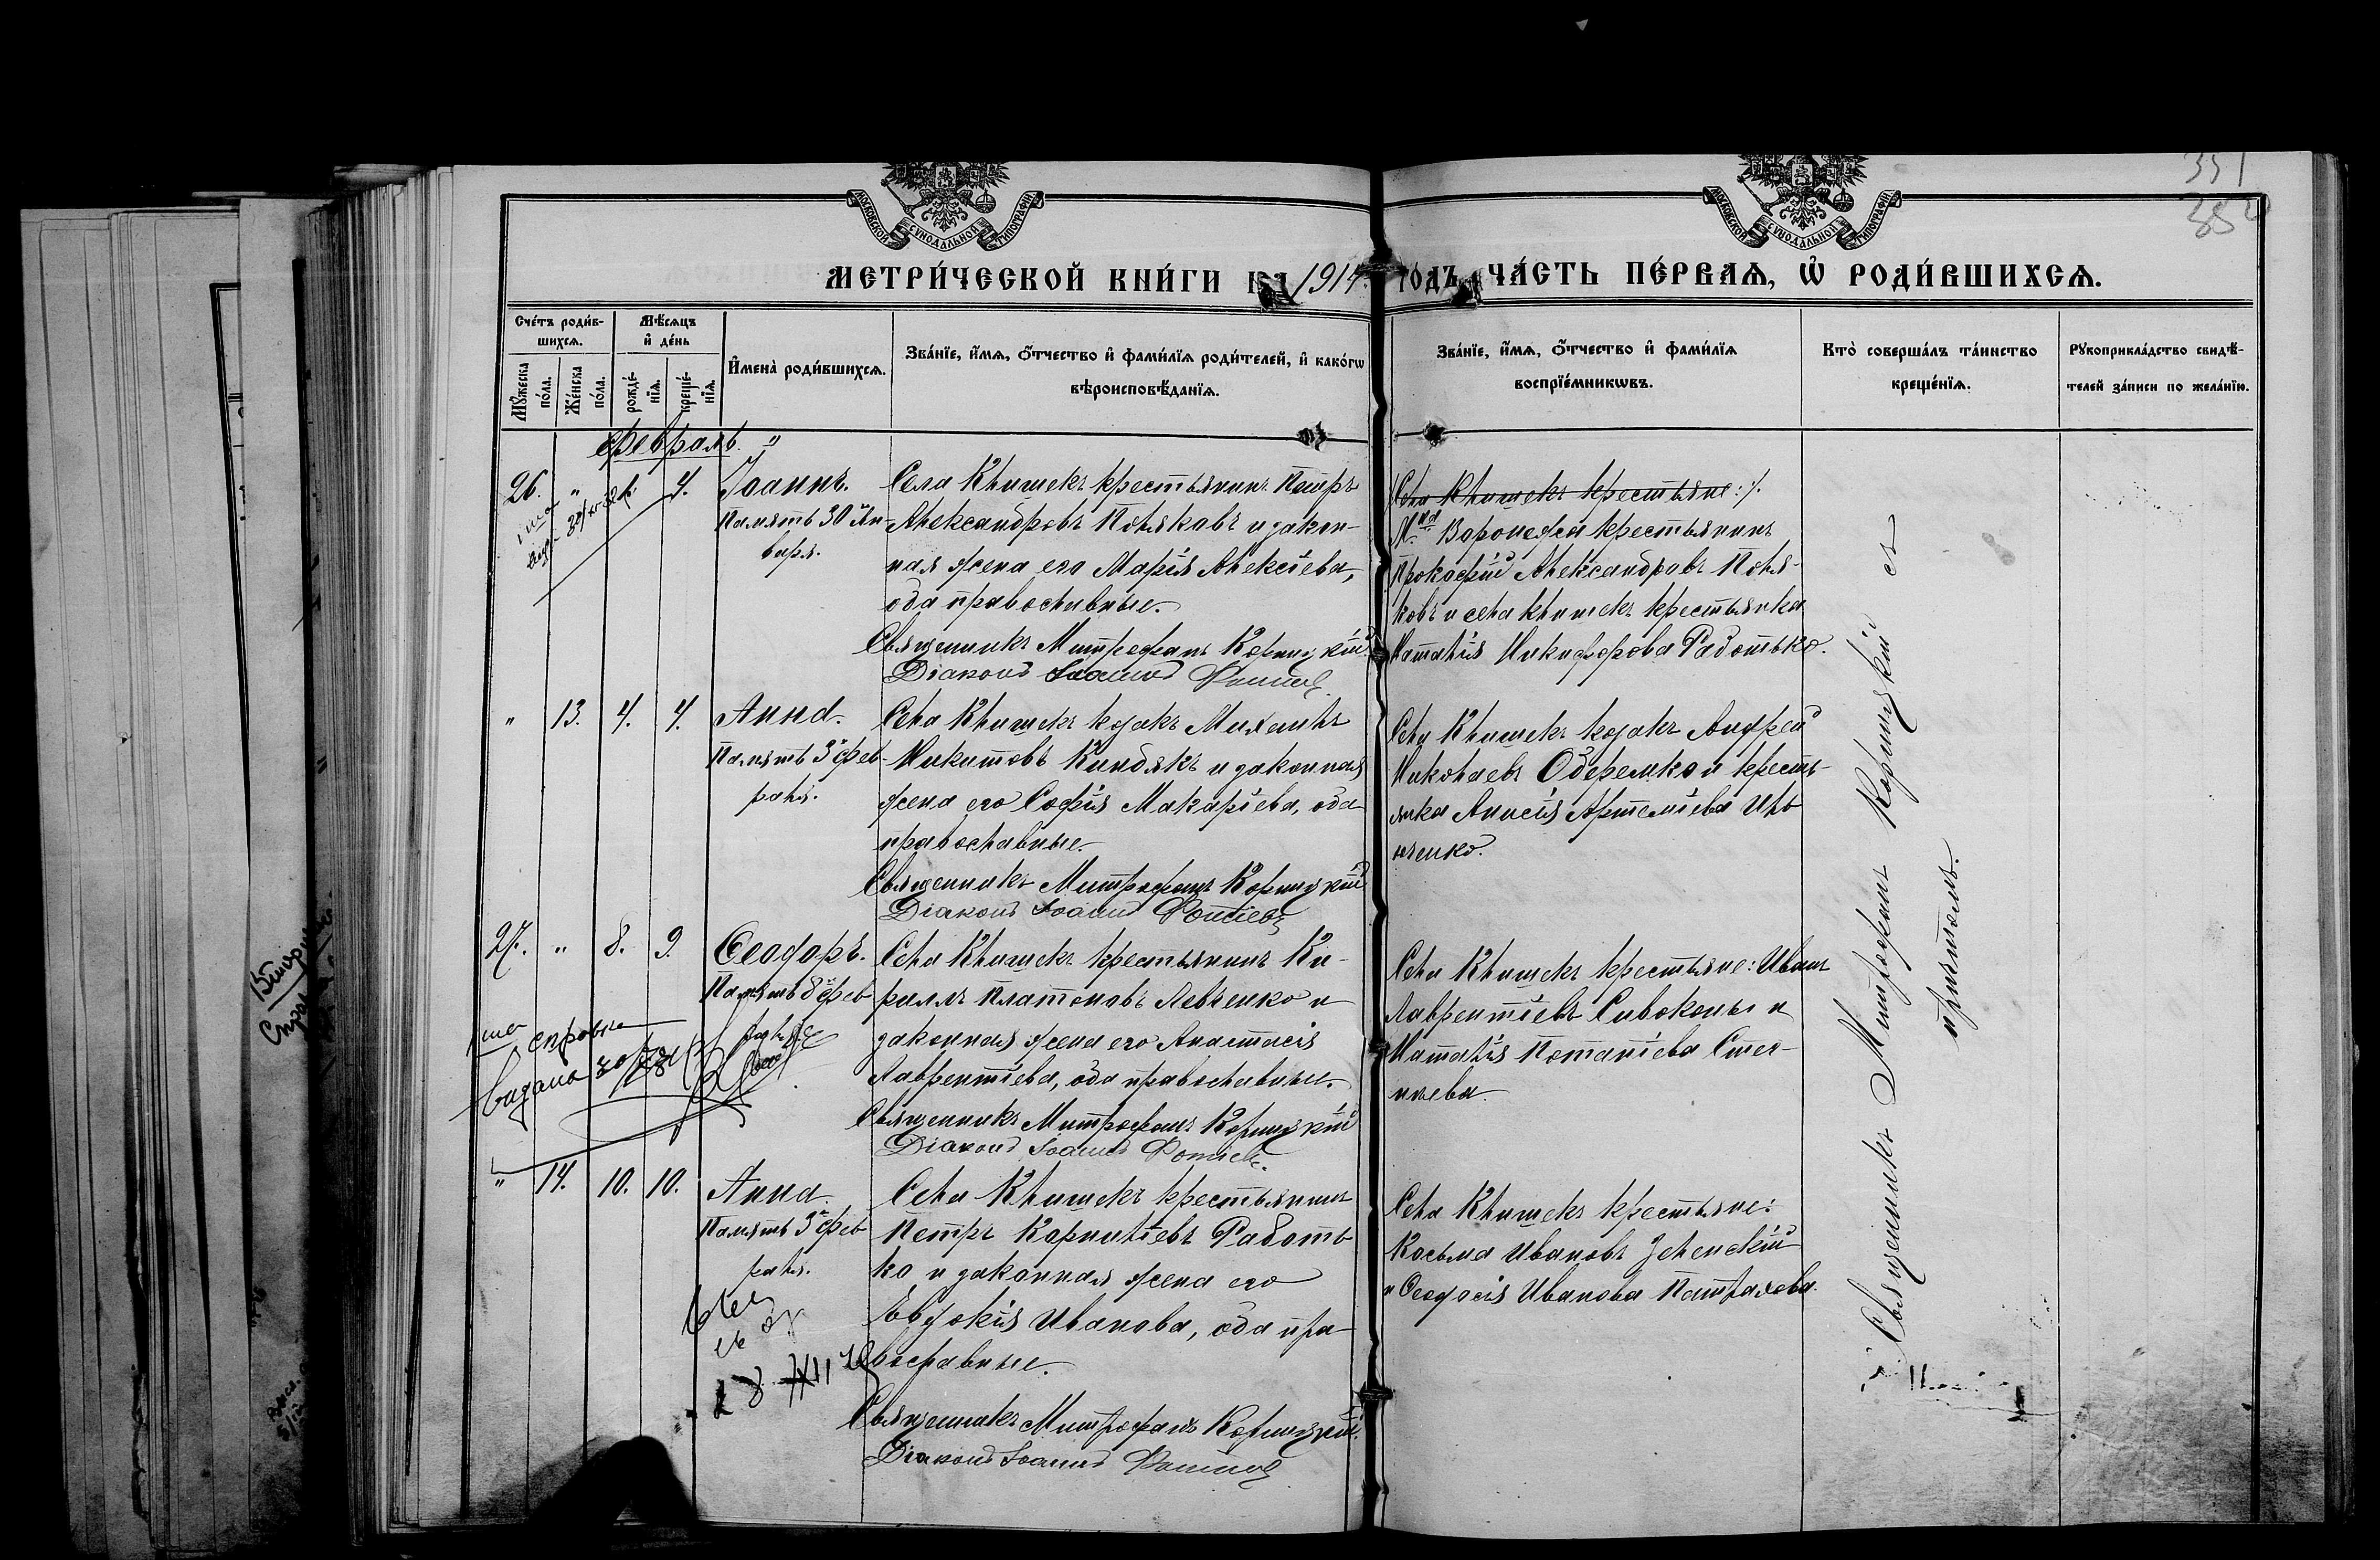 351
МОСКОВСКОЙ СѴНОДАЛЬНОЙ ТИПОГРАФІИ
МОСКОВСКОЙ СѴНОДАЛЬНОЙ ТИПОГРАФІИ
МЕТРИ́ЧЕСКОЙ КНИ́ГИ НА 1914 ГОДЪ, ЧА́СТЬ ПЕ́РВАѦ, Ѡ҆ РОДИ́ВШИХСѦ.
Сче́тъ роди́в-
шихсѧ.
Мꙋ́жеска по́ла.
Же́нска по́ла.
Мѣ́сѧцъ
и҆ де́нь
рожде́-
нїѧ.
креще́-
нїѧ.
И҆мена̀ роди́вшихсѧ.
Зва́нїе, и҆́мѧ, ѻ҆́тчество и҆ фами́лїѧ роди́телей, и҆ како́гѡ
вѣроисповѣ́данїѧ.
Зва́нїе, и҆́мѧ, ѻ҆́тчество и҆ фами́лїѧ
воспрїе́мникѡвъ.
Кто̀ соверша́лъ та́инство
креще́нїѧ.
Рꙋкоприкла́дство свидѣ́-
телей за́писи по жела́нїю.
Февраль "
26. " 4. Іоаннъ.
Память 30 Ян-
варя.
Села Клишекъ крестьянинъ Петръ
Александровъ Поляковъ и закон-
ная жена его Марія Алексіева,
оба православные.
Священникъ Митрофанъ Корицкій
Діаконъ Іоаннъ
Села Клишекъ крестьяне:
Воронежа крестьянинъ
Прокофій Александровъ Поля-
ковъ и села Клишекъ крестьянка
Наталія Никифорова Работько.
" 13. 4. 4. Анна.
Память 3 фев-
раля.
Села Клишекъ козакъ Михаилъ
Никитовъ Киндякъ и законная
жена его Софія Макаріева, оба
православные.
Священникъ Митрофанъ Корицкій
Діаконъ Іоаннъ
Села Клишекъ козакъ Андрей
Николаевъ Одеремко и кресть-
янка Анисія Артеміева Иль
яченко.
27. " 8. 9. Ѳеодоръ.
Память 8 фев-
раля
Села Клишекъ крестьянинъ Ки-
риллъ Платоновъ Левченко и
законная жена его Анастасія
Лаврентіева, оба православные.
Священникъ Митрофанъ Корицкій
Діаконъ Іоаннъ
Села Клишекъ крестьяне: Иванъ
Лаврентіевъ Сивоконь и
Наталія Потапіева
справка
" 14. 10. 10. Анна.
Память 3 фев-
раля.
Села Клишекъ крестьянинъ
Петръ Корниліевъ Работь
ко и законная жена его
Евдокія Иванова, оба пра-
вославные.
Священникъ Митрофанъ Корицкій
Діаконъ Іоаннъ
Села Клишекъ крестьяне:
Косьма Ивановъ Зеленскій
и Ѳеодосія Иванова
Священникъ Митрофанъ Корицкій съ
причтомъ.